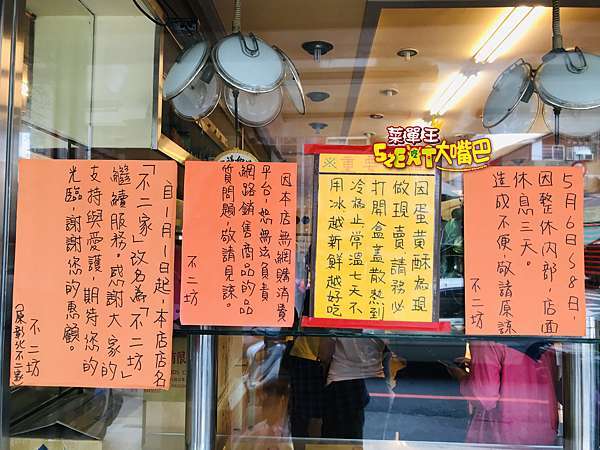 菜單王
52EAT大嘴巴
5月6日~8日,
因整休內部,店面
休息三天。
造成不便,敬請原諒
不二坊
※重
因蛋黃酥為現
做現賣請務必
打開盒蓋散熱到
冷為止常溫七天不
用冰越新鮮越好吃
因本店無網購消費
平台,恕無法負責
網路銷售商品的品
質問題,敬請見諒。
不二坊
自1月1日起,本店店名
「不二家」改名為「不二坊」
繼續服務。感謝大家的
支持與愛護,期待您的
光臨,謝謝您的惠顧。
不二坊
(原彰化不二家)